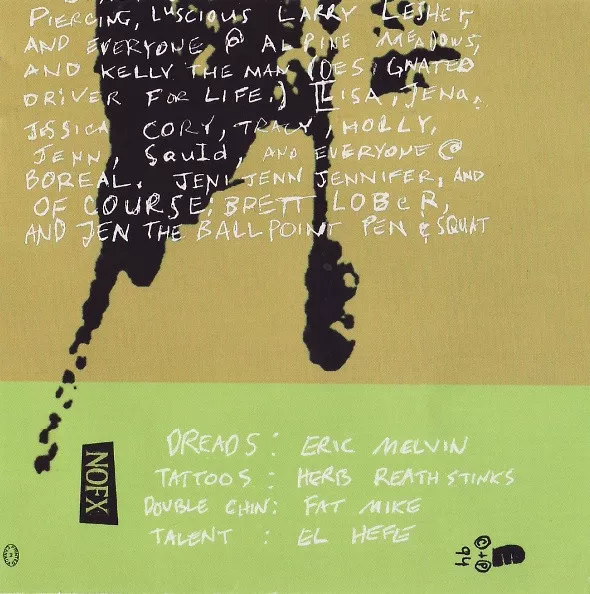 PIERCING, LUSCIOUS LARRY LESHER,
AND EVERYONE @ ALPINE MEADOWS,
AND KELLY THE MAN (DESIGNATED
DRIVER FOR LIFE.) LISA, JENA,
JESSICA CORY, TRACY, HOLLY,
JENN, SquId, AND EVERYONE @
BOREAL. JENI JENN JENNIFER, AND
OF COURSE; BRETT LOBER,
AND JEN THE BALLPOINT PEN & SQUAT
DREADS: ERIC MELVIN
TATTOOS: HERB REATH STINKS
DOUBLE CHIN: FAT MIKE
TALENT: EL HEFE
NOFX
©+℗
94